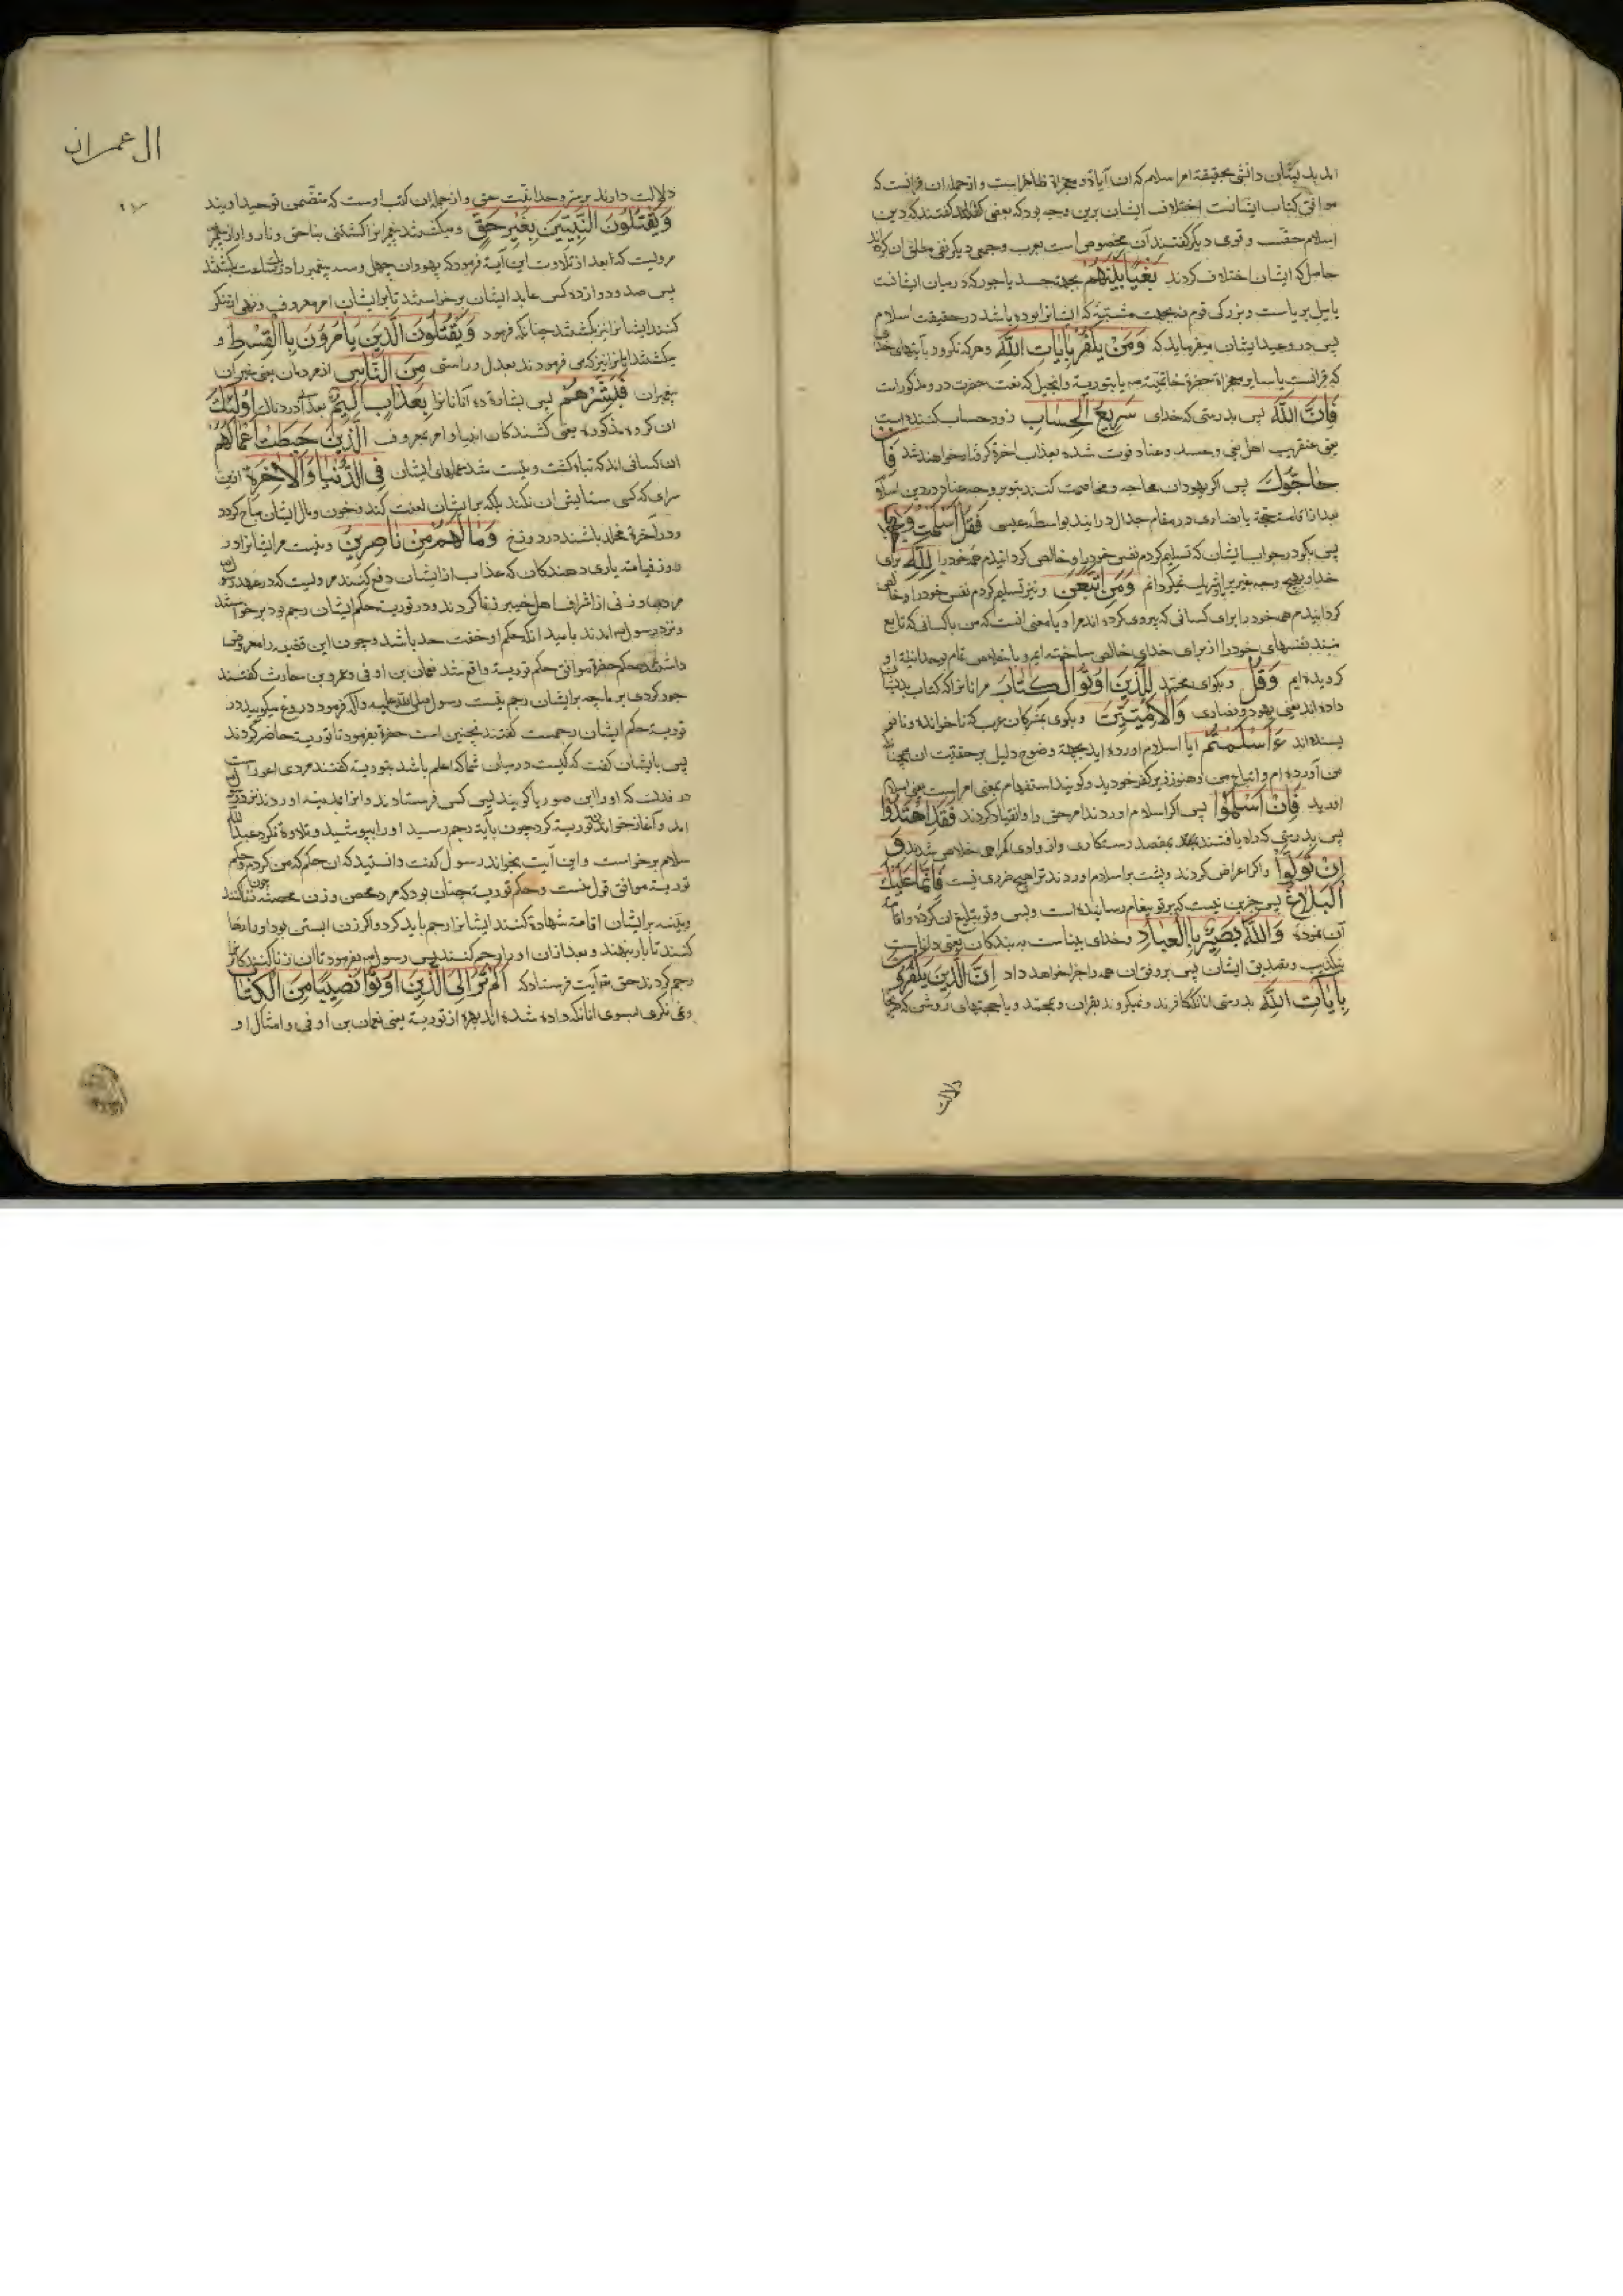 امد بدیشان دانش بحقیقة امر اسلام که ان آیاة و معجزاة ظاهراست و ازجمله ان قرانست که
موافق کتاب ایشانست اختلاف ایشان برین وجه بود که بعضی گفتند که دین
اسلام حقست و قومی دیگر گفتند آن مخصوص است بعرب و جمعی دیگر نفی مطلق ان کرده اند
حاصل که ایشان اختلاف کردند بَغْيًا بَيْنَهُمْ بجهت حسد یا جور که در میان ایشانست
یا میل بریاست و بزرگی قوم نه بجهت شبهة که ایشانرا بوده باشد در حقیقت اسلام
پس در وعید ایشان میفرماید که وَمَنْ يَكْفُرْ بِاٰيَاتِ اللّٰهِ و هر که نکرود بآیتهای خدا
که قرانست یا سایر معجزاة حضرة یا بتوریة و انجیل که نعت حضرت در و مذکورست
فَاِنَّ اللّٰهَ پس بدرستی که خدای سَرِيعُ الْحِسَابِ زود حساب کننده است
یعنی عنقریب اهل بغی و حسد و عناد فوت شده بعذاب اخرة گرفتار خواهند شد فَاِنْ
حَاجُّوكَ پس اگر یهودان محاجه و مخاصمت کنند بتو بر وجه عناد در دین اسلام
بعد از اقامت حجة یا نصاری در مقام جدال درایند بواسطه عیسی فَقُلْ اَسْلَمْتُ وَجْهِيَ
پس بگو در جواب ایشان که تسلیم کردم نفس خود را و خالص کردانیدم همه خود را لِلّٰهِ برای
خدا و بهیچ وجه غیر برا شریک نمیگردانم وَمَنِ اتَّبَعَنِ و نیز تسلیم کردم نفس خود را و خالص
کردانیدم همه خود را برای کسانی که پیروی کرده اند مرا و یا معنی انست که من با کسانی که تابع
منند نفسهای خود را از برای خدای خالص ساخته ایم و با خلاص تمام بوحدانیة او
کرویده ایم وَقُلْ و بگو ای محمد لِلَّذِينَ اُوتُوا الْكِتَابَ مر انانرا که کتاب بدیشان
داده اند یعنی یهود و نصاری وَالْاُمِّيِّينَ و بگوی بمشرکان عرب که ناخوانده و نانو
یسنده اند ءَاَسْلَمْتُمْ ایا اسلام اورده اید بجهة وضوح دلیل بر حقیت ان همچنانکه
من آورده ام و اتباع من و هنوز بر کفر خودید و کویند استفهام بمعنی امر است یعنی اسلام
اورید فَاِنْ اَسْلَمُوا پس اگر اسلام اوردند امر حق را و انقیاد کردند فَقَدِ اهْتَدَوْا
پس بدرستی که راه یافتند بمقصد رستکاری و از وادی گمراهی خلاص شدند وَ
اِنْ تَوَلَّوْا و اگر اعراض کردند و پشت بر اسلام اوردند ترا هیچ ضرری نیست فَاِنَّمَا عَلَيْكَ
الْبَلَاغُ پس جزین نیست که بر تو پیغام رسانیدنست و بس و تو تبلیغ ان کرده و اقامة
آن نموده وَاللّٰهُ بَصِيرٌ بِالْعِبَادِ و خدای بیناست به بندکان یعنی داناست
بتکذیب و تصدیق ایشان پس بر وفق ان همه را جزا خواهد داد اِنَّ الَّذِينَ يَكْفُرُونَ
بِاٰيَاتِ اللّٰهِ بدرستی انانکه کافرند و نمیکروند بقران و بمحمد و یا حجتهای روشن که بر
دلالت
ال عمران
دلالت دارند بر وحدانیت حق و از جمله ان کتب اوست که متضمن توحید اویند
وَيَقْتُلُونَ النَّبِيِّينَ بِغَيْرِ حَقٍّ و میکشند پیغمبرانرا کشتنی بناحق و ناروا
مرویست که بعد از تلاوت این آیة فرمود که یهودان چهل و سه پیغمبر را در یکساعت بکشتند
پس صد و دوازده کس عابد ایشان برخواستند تا برایشان امر معروف و نهی از منکر
کنند ایشانرا نیز بکشتند چنانکه فرمود وَيَقْتُلُونَ الَّذِينَ يَأْمُرُونَ بِالْقِسْطِ و
میکشند انانرا نیز که می فرمودند بعدل و راستی مِنَ النَّاسِ از مردمان یعنی غیر ان
پیغمبران فَبَشِّرْهُمْ پس بشارة ده آنانانرا بِعَذَابٍ اَلِيمٍ بعذاب دردناک اُولٰئِكَ
ان گروه مذکوره یعنی کشندگان انبیا و امر بمعروف الَّذِينَ حَبِطَتْ اَعْمَالُهُمْ
ان کسانی اند که تباه کشت و نیست شد عملهای ایشان فِي الدُّنْيَا وَالْاٰخِرَةِ درین
سرای که کسی ستایش ان نکند بلکه برایشان لعنت کند و خون و مال ایشان مباح گردد
و در آخرة مخلد باشند در دوزخ وَمَا لَهُمْ مِنْ نَاصِرِينَ و نیست مر ایشانرا در
روز قیامة یاری دهندکان که عذاب از ایشان دفع کنند مرویست که در عهد رسول
مردی و زنی از اشراف اهل خیبر زنا کردند و در توریة حکم ایشان رجم بود برخواستند
و نزد رسول امدند بامید انکه حکم او خفت حد باشد و چون این قضیه را معروض
داشتند حکم حضرة موافق حکم توریة واقع شد نعمان بن اوفی و عمرو بن حارث گفتند
جور کردی بر ما چه برایشان رجم نیست رسول صلی الله علیه وآله فرمود دروغ میکویید در
توریة حکم ایشان رجمست گفتند نچنین است حضرة بفرمود تا توریة حاضر گردند
پس بایشان گفت که کیست در میان شما که اعلم باشد بتوریة گفتند مردی اعور است
در فدک که او را ابن صوریا گویند پس کسی فرستادند و انرا بمدینه اوردند نزد رسول
امد و آغاز خواندن توریة کرد چون بآیة رجم رسید او را بپوشید و تلاوة نکرد عبدالله
سلام برخواست و این آیت بخواند رسول گفت دانستید که ان حکم که من کردم حکم
توریة موافق قول منست و حکم توریة چنان بود که مرد محصن و زن محصنه چون زنا کنند
و بینه برایشان اقامة شهادة کنند ایشانرا رجم باید کرد و اگر زن ابستن بود او را رها
کنند تا بار بنهند و بعد ازان او را رجم کنند پس رسول بفرمود تا ان زنا کنندکانرا
رجم کردند حق آیت فرستاد که اَلَمْ تَرَ اِلَى الَّذِينَ اُوتُوا نَصِيبًا مِنَ الْكِتَابِ
و نمی نکری بسوی انانکه داده شده اند بهره از توریة یعنی نعمان بن اوفی و امثال او